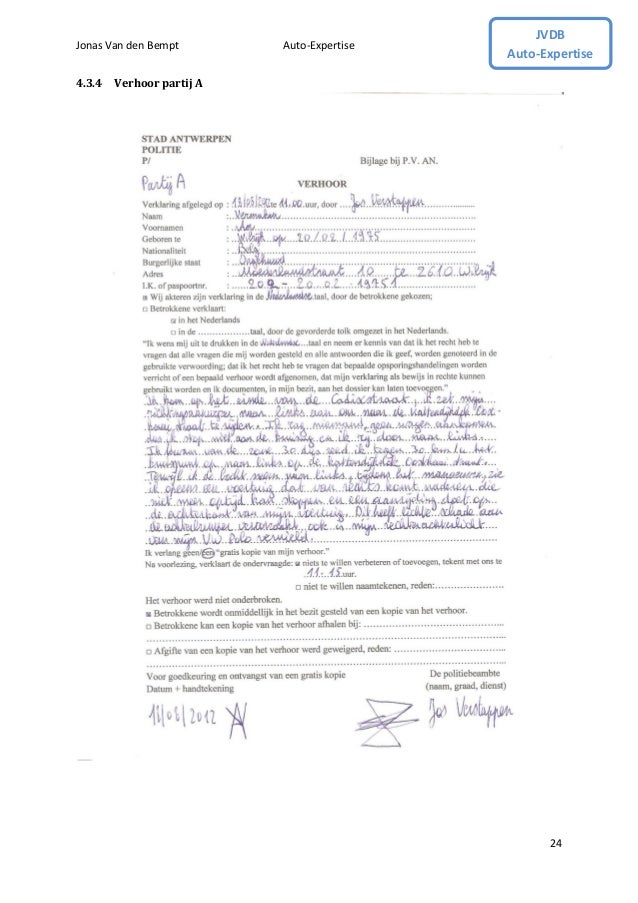 Jonas Van den Bempt Auto-Expertise
JVDB
Auto-Expertise
4.3.4 Verhoor partij A
STAD ANTWERPEN
POLITIE
P/ Bijlage bij P.V. AN.
Partij A
VERHOOR
Verklaring afgelegd op : te 11.00 uur, door Jos Verstappen
Naam :
Voornamen :
Geboren te : Wilrijk op 20/02/1975
Nationaliteit : Belg
Burgerlijke staat : Ongehuwd
Adres : Moederlandstraat 10 te 2610 Wilrijk
I.K. of paspoortnr. : 209 - 20.02.19751
Wij akteren zijn verklaring in de Nederlandse taal, door de betrokkene gekozen;
□ Betrokkene verklaart:
in het Nederlands
□ in de ..................taal, door de gevorderde tolk omgezet in het Nederlands.
"Ik wens mij uit te drukken in de Nederlandse taal en neem er kennis van dat ik het recht heb te
vragen dat alle vragen die mij worden gesteld en alle antwoorden die ik geef, worden genoteerd in de
gebruikte verwoording; dat ik het recht heb te vragen dat bepaalde opsporingshandelingen worden
verricht of een bepaald verhoor wordt afgenomen, dat mijn verklaring als bewijs in rechte kunnen
gebruikt worden en ik documenten, in mijn bezit, aan het dossier kan laten toevoegen."
Ik kom op het einde van de Cadixstraat, ik zet mijn
richtingaanwijzer naar links aan om naar de Kattendijkdok Oost-
kaai straat te rijden. Ik zag niemand, geen wagen aankomen
dus ik stop niet aan de kruising en ik rij door naar links.
Ik kwam van de zone 30 dus reed ik tegen 30 km/u het
kruispunt op naar links op de Kattendijkdok Oostkaai straat.
Terwijl ik de bocht neem naar links, tijdens het manoeuver, zie
ik opeens een voertuig dat van rechts komt naderen die
niet meer optijd kan stoppen en een aanrijding doet op
de achterkant van mijn voertuig. Dit heeft lichte schade aan
de achterbumper veroorzaakt ook is mijn rechterachterlicht
van mijn VW Polo vernield.
Ik verlang geen/een "gratis kopie van mijn verhoor."
Na voorlezing, verklaart de ondervraagde: niets te willen verbeteren of toevoegen, tekent met ons te
11.15 uur.
□ niet te willen naamtekenen, reden:
Het verhoor werd niet onderbroken.
Betrokkene wordt onmiddellijk in het bezit gesteld van een kopie van het verhoor.
□ Betrokkene kan een kopie van het verhoor afhalen bij:
□ Afgifte van een kopie van het verhoor werd geweigerd, reden:
Voor goedkeuring en ontvangst van een gratis kopie De politiebeambte
Datum + handtekening (naam, graad, dienst)
18/08/2012 Jos Verstappen
24